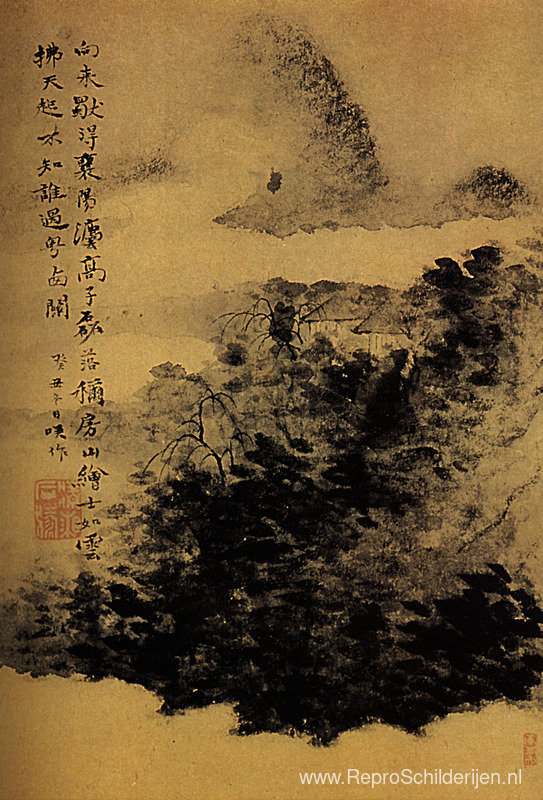 向来得襄陽高子磊落稱房山繪士如雲
拂天起不知誰過西關
癸丑日作
www.ReproSchilderijen.nl